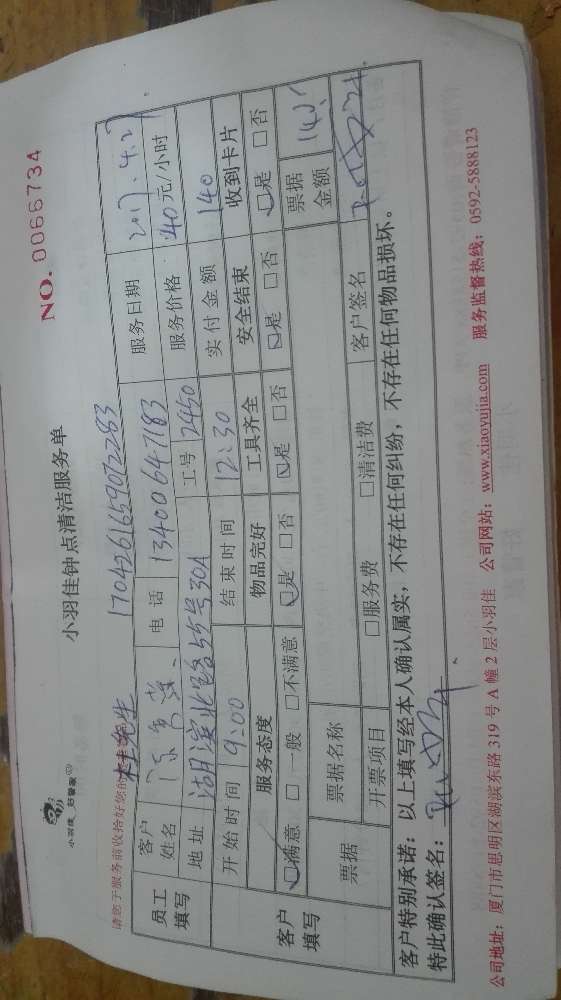 小羽佳 好管家
小羽佳钟点清洁服务单
NO. 0066734
请您于服务前收拾好您的
林先生 1704261659072283
员工填写
客户姓名 电话 13400647183 服务日期 2017.4.27.
地址 湖滨北路55号30A 工号 2450 服务价格 40元/小时
客户填写
开始时间 9:00 结束时间 12:30 实付金额 140
服务态度 物品完好 工具齐全 安全结束 收到卡片
☑满意 □一般 □不满意 ☑是 □否 ☑是 □否 ☑是 □否 ☑是 □否
票据 票据名称 票据金额 140.
开票项目 □服务费 □清洁费 客户签名
客户特别承诺:以上填写经本人确认属实,不存在任何纠纷,不存在任何物品损坏。
特此确认签名:
公司地址:厦门市思明区湖滨东路 319 号 A 幢 2 层小羽佳 公司网站:www.xiaoyujia.com 服务监督热线:0592-5888123